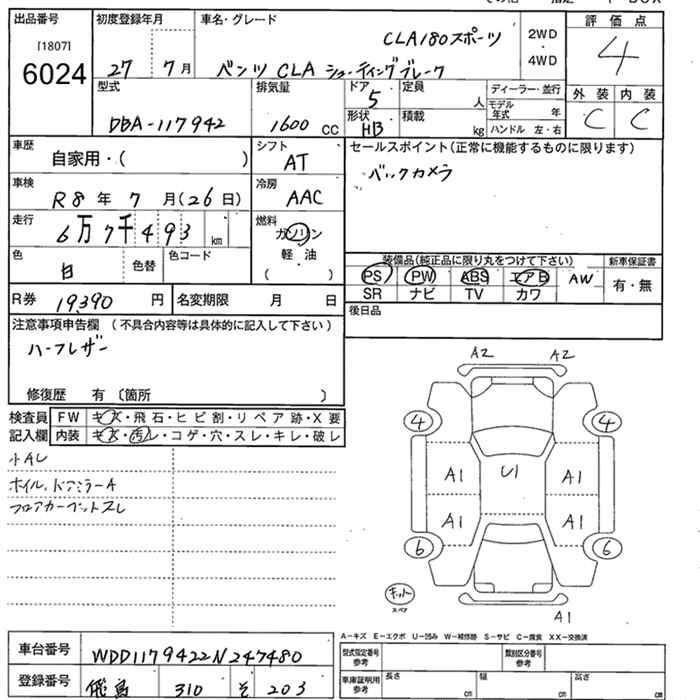 出品番号 初度登録年月 車名・グレード 評価点
[1807] CLA180スポーツ 2WD・4WD 4
6024 27 7月 ベンツ CLA シューティングブレーク
型式 排気量 ドア 5 定員 人 ディーラー・並行 外装 内装
DBA-117942 1600 cc 形状 HB 積載 kg モデル年式 年 C C
ハンドル 左・右
車歴 シフト セールスポイント(正常に機能するものに限ります)
自家用・( ) AT バックカメラ
車検 冷房
R8年 7月(26日) AAC
走行 燃料
6万7千493 km ガソリン
色 色替 色コード 軽・油
白 ( )
装備品(純正品に限り丸をつけて下さい) 新車保証書
PS PW ABS エアB AW 有・無
SR ナビ TV カワ
R券 19,390円 名変期限 月 日 後日品
注意事項申告欄 (不具合内容等は具体的に記入して下さい)
ハーフレザー
修復歴 有 〔箇所 〕
検査員 FW キズ・飛石・ヒビ割・リペア跡・X要
記入欄 内装 キズ・汚レ・コゲ・穴・スレ・キレ・破レ
小AU
ホイル、ドアミラーA
フロアカーペットスレ
A2 A2
4 4
A1 U1 A1
A1 A1
6 6
キット
スペア
A1
A-キズ E-エクボ U-凹み W-補修跡 S-サビ C-腐食 XX-交換済
車台番号 WDD1179422N247480
型式指定番号 参考 類別区分番号 参考
登録番号 飛鳥 310 そ 203
車庫証明用 参考 長さ cm 幅 cm 高さ cm